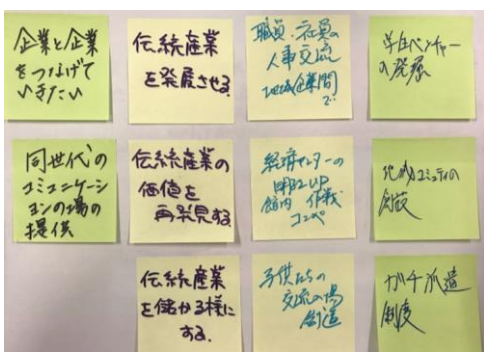 企業と企業
をつなげて
いきたい
伝統産業
を発展させる。
職員・社員の
人事交流
地域企業間
で
学生ベンチャー
の発掘
同世代の
コミュニケーシ
ョンの場の
提供
伝統産業の
価値を
再発見する。
経済センターの
明るさUP
館内 作戦
コンペ
地域コミュニティの
創設
伝統産業
を儲かる様に
する。
子供たちの
交流の場
創造
ガチ派遣
制度